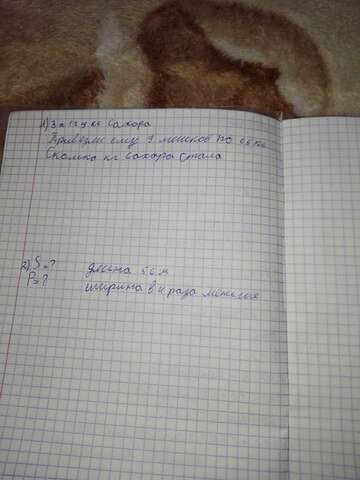 1) 3 т кг сахора
Привезли ещу 9 мешков по кг
Сколька кг сахора стала
2) S=? длина 56 м
P=? ширина в 4 раза меньше